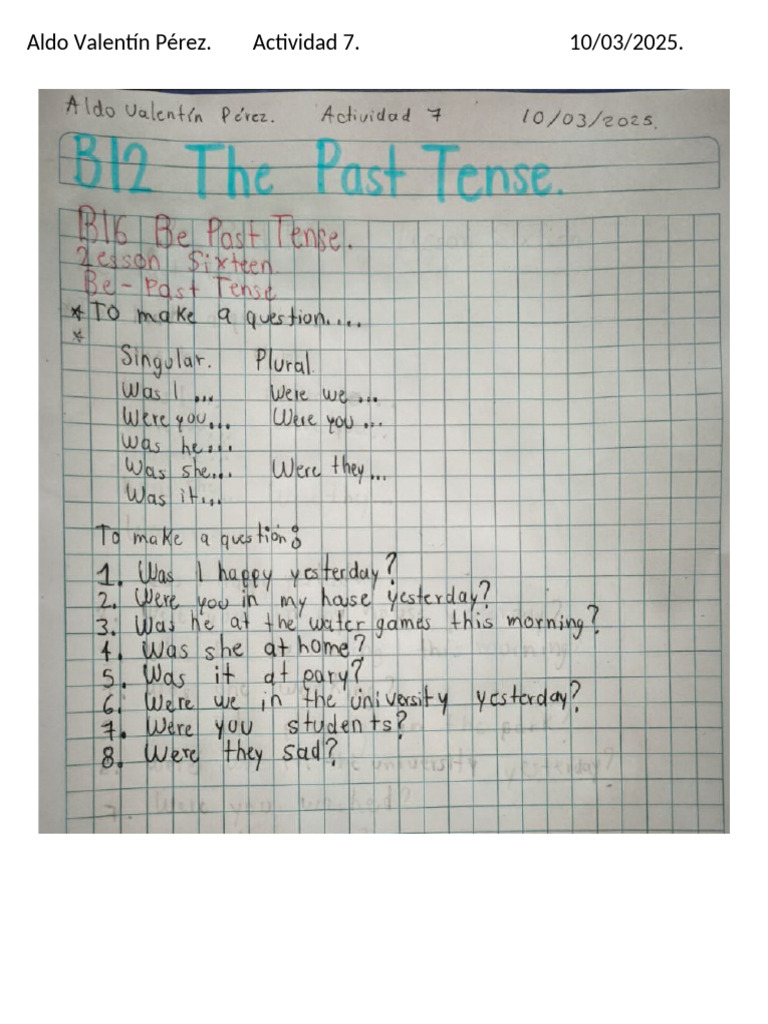 Aldo Valentín Pérez. Actividad 7. 10/03/2025.
Aldo Valentín Pérez. Actividad 7 10/03/2025.
B12 The Past Tense.
B16 Be Past Tense.
Lesson Sixteen
Be - Past Tense
* To make a question....
*
Singular. Plural
Was I ... Were we ...
Were you... Were you ...
Was he...
Was she... Were they...
Was it...
To make a question:
1. Was I happy yesterday?
2. Were you in my house yesterday?
3. Was he at the water games this morning?
4. Was she at home?
5. Was it at pary?
6. Were we in the university yesterday?
7. Were you students?
8. Were they sad?